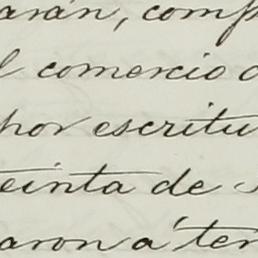 arán, comp
l comercio d
por escritu
einta de
aron a ter